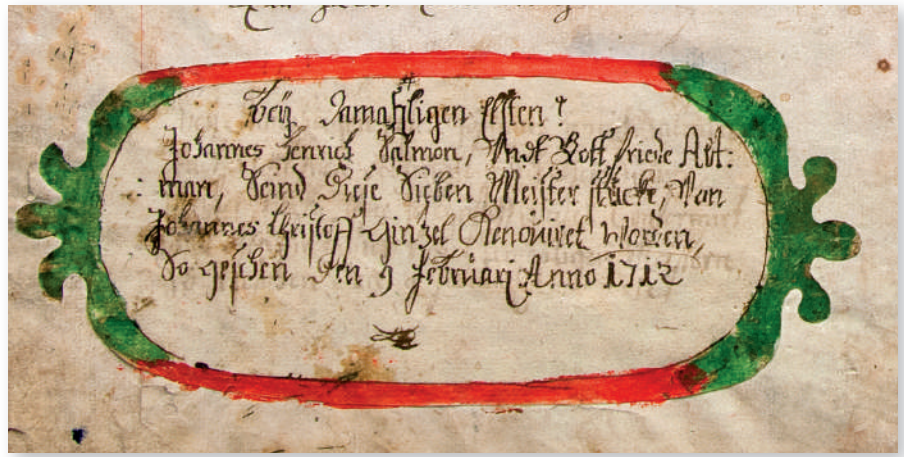 beÿ Damahligen Elsten!
Johannes Henrich Salmon, Undt Gottfriede Alt:
man, Seind Diese Sieben Meister stücke, Von
Johannes Christoff Hintzel Renoviret Worden,
So geschen Den 9 Februari Anno 1712